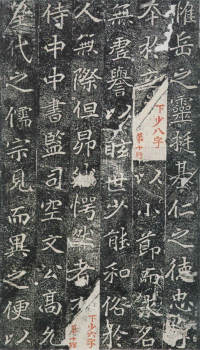 惟岳之靈挺基仁之德忠
本 以小節而求名
無虛譽以眩世少能和俗於
人無際但昂 愕然者
侍中中書監司空文公高允
代之儒宗見而異之便以
下少八字
第十
下少六字
第十